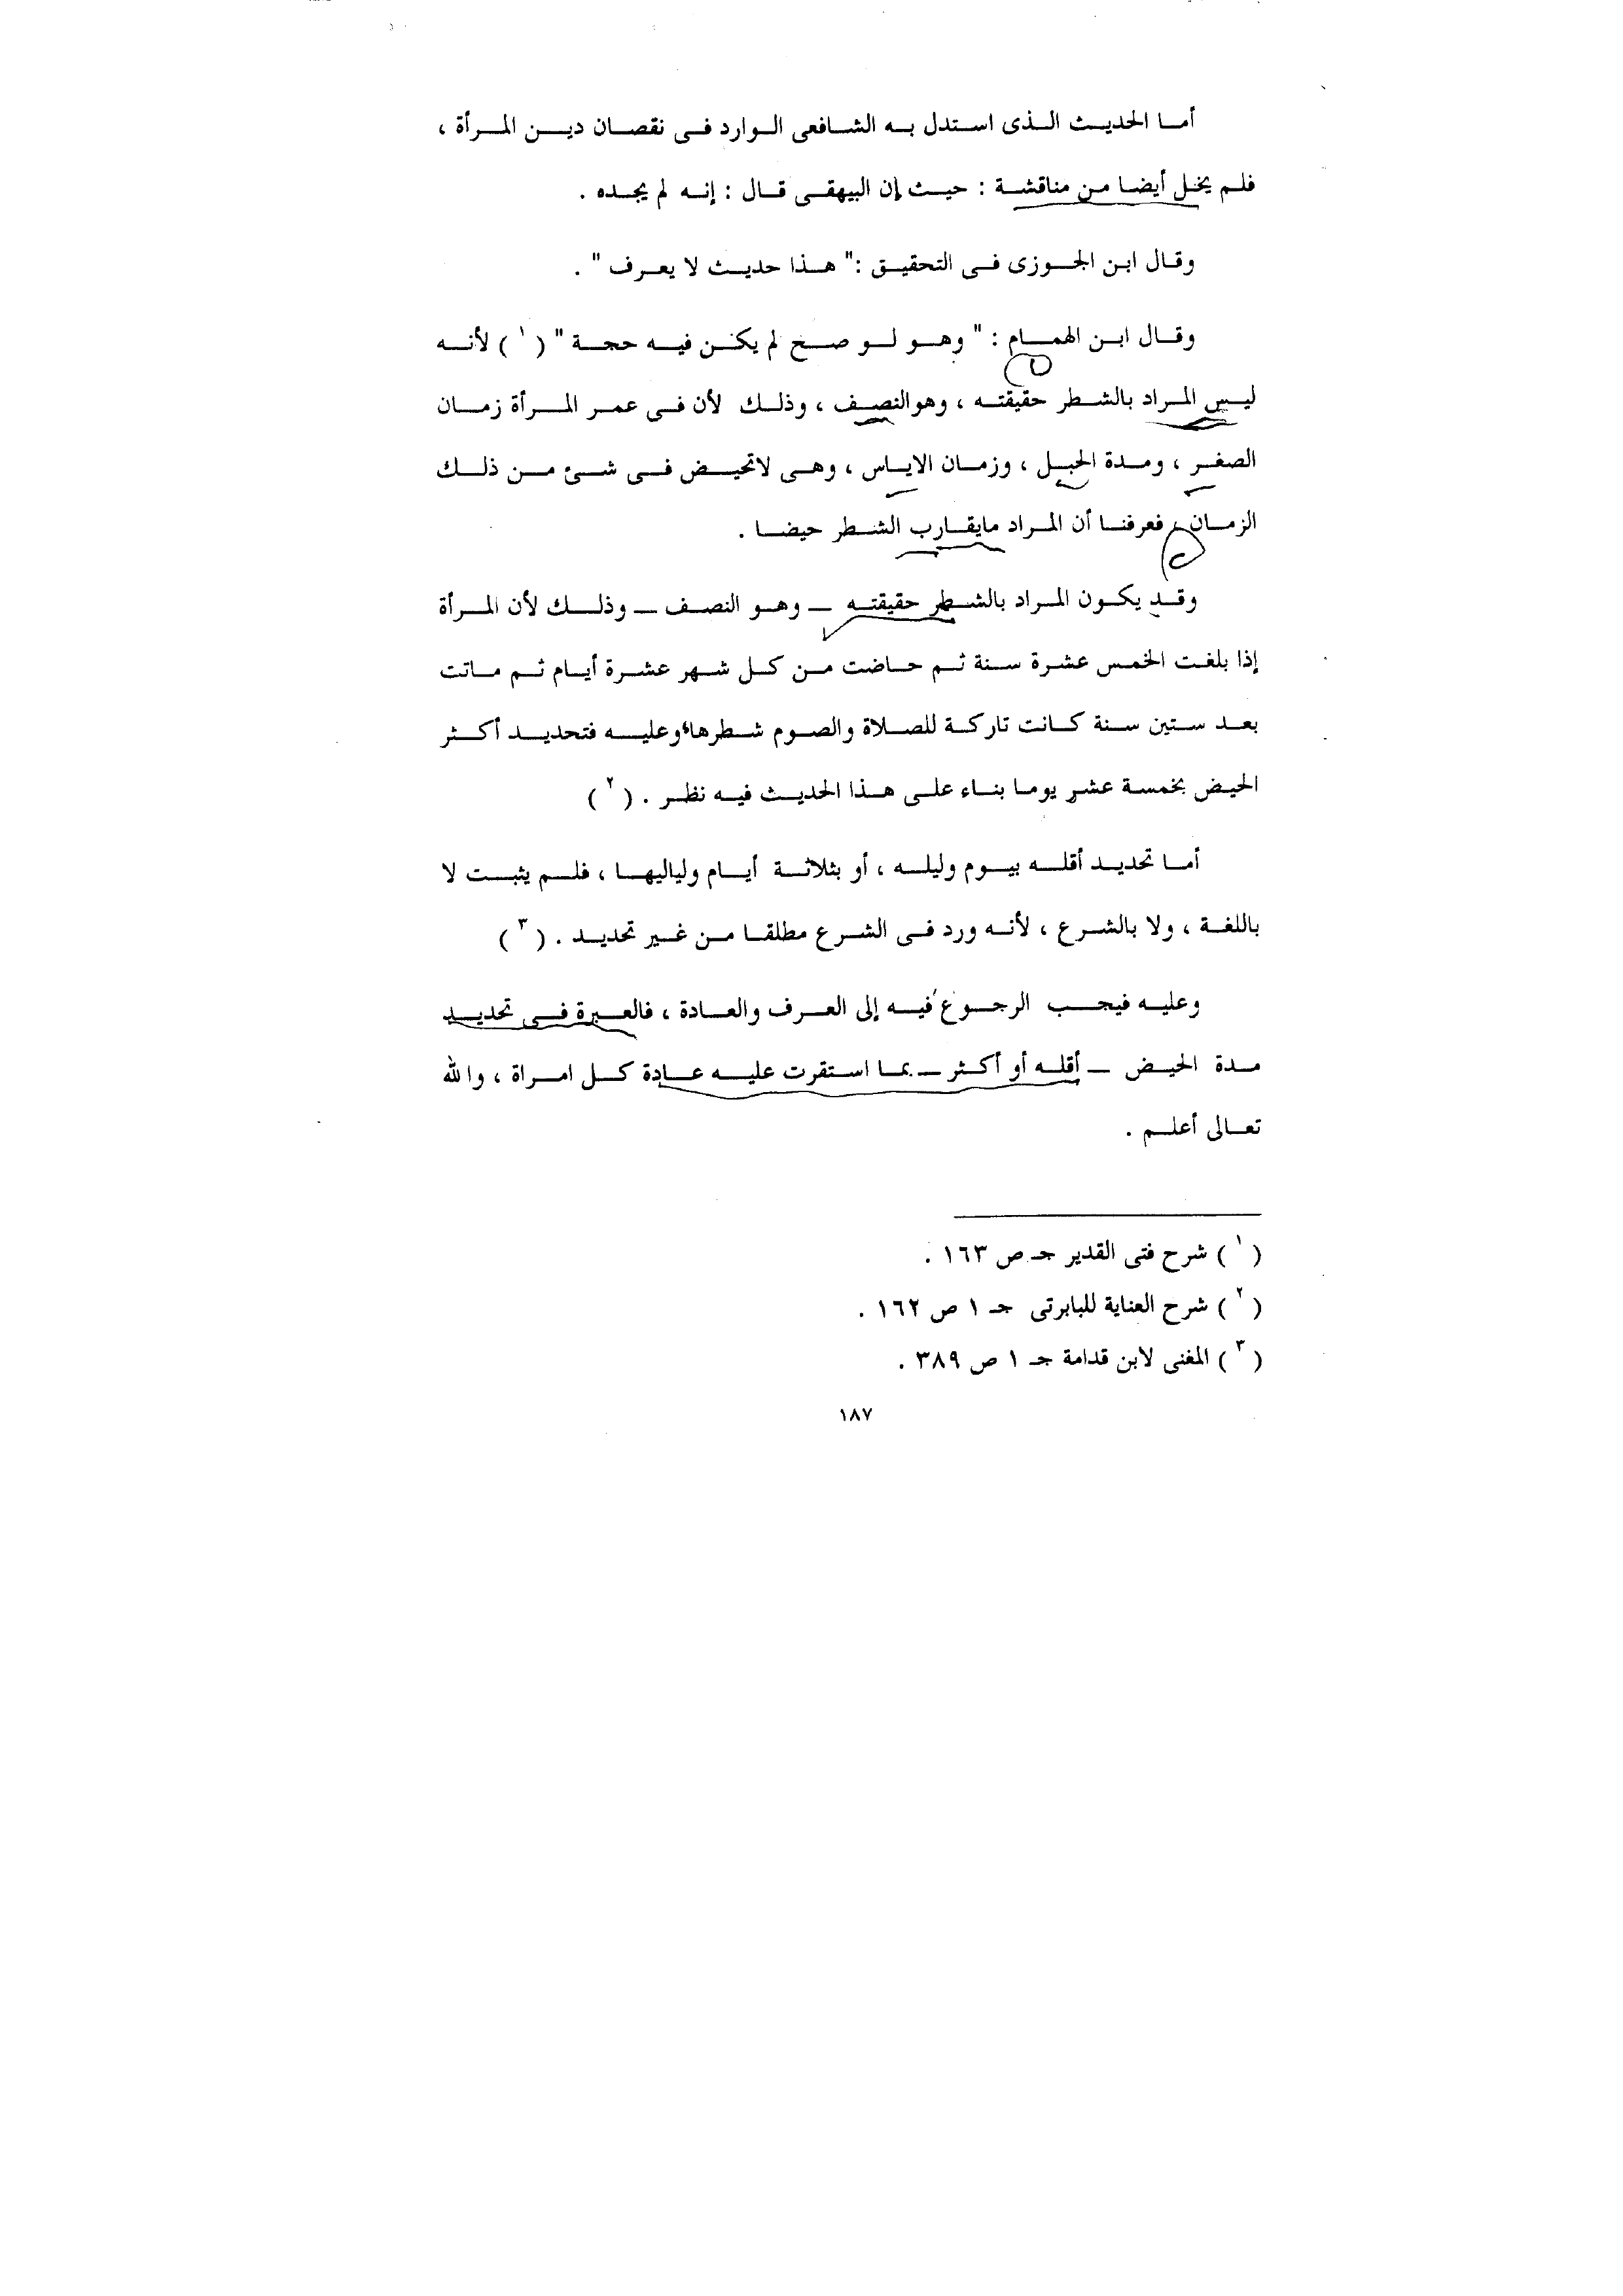 أما الحديث الذى استدل به الشافعى الوارد فى نقصان دين المرأة ،
فلم يخل أيضا من مناقشة : حيث إن البيهقى قال : إنه لم يجده .
وقال ابن الجوزى فى التحقيق :" هذا حديث لا يعرف " .
وقال ابن الهمام : " وهو لو صح لم يكن فيه حجة " ( ١ ) لأنه
ليس المراد بالشطر حقيقته ، وهوالنصف ، وذلك لأن فى عمر المرأة زمان
الصغر ، ومدة الحبل ، وزمان الاياس ، وهى لاتحيض فى شئ من ذلك
الزمان ، فعرفنا أن المراد مايقارب الشطر حيضا .
وقد يكون المراد بالشطر حقيقته – وهو النصف – وذلك لأن المرأة
إذا بلغت الخمس عشرة سنة ثم حاضت من كل شهر عشرة أيام ثم ماتت
بعد ستين سنة كانت تاركة للصلاة والصوم شطرها، وعليه فتحديد أكثر
الحيض بخمسة عشر يوما بناء على هذا الحديث فيه نظر . ( ٢ )
أما تحديد أقله بيوم وليله ، أو بثلاثة أيام ولياليها ، فلم يثبت لا
باللغة ، ولا بالشرع ، لأنه ورد فى الشرع مطلقا من غير تحديد . ( ٣ )
وعليه فيجب الرجوع فيه إلى العرف والعادة ، فالعبرة فى تحديد
مدة الحيض – أقله أو أكثر – بما استقرت عليه عادة كل امراة ، والله
تعالى أعلم .
( ١ ) شرح فتى القدير جـ ص ١٦٣ .
( ٢ ) شرح العناية للبابرتى جـ ١ ص ١٦٢ .
( ٣ ) المغنى لابن قدامة جـ ١ ص ٣٨٩ .
١٨٧